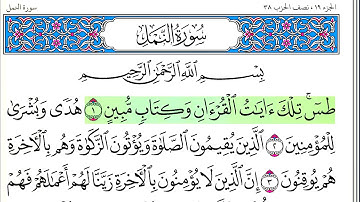 الجزء ١٩ ، نصف الحزب ٣٨
سورة النمل
سُورَةُ النَّمْلِ
بِسْمِ اللَّهِ الرَّحْمَٰنِ الرَّحِيمِ
طسٓ ۚ تِلْكَ ءَايَٰتُ الْقُرْءَانِ وَكِتَابٍ مُّبِينٍ ١ هُدًى وَبُشْرَىٰ
لِلْمُؤْمِنِينَ ٢ الَّذِينَ يُقِيمُونَ الصَّلَوٰةَ وَيُؤْتُونَ الزَّكَوٰةَ وَهُم بِالْءَاخِرَةِ
هُمْ يُوقِنُونَ ٣ إِنَّ الَّذِينَ لَا يُؤْمِنُونَ بِالْءَاخِرَةِ زَيَّنَّا لَهُمْ أَعْمَٰلَهُمْ فَهُمْ